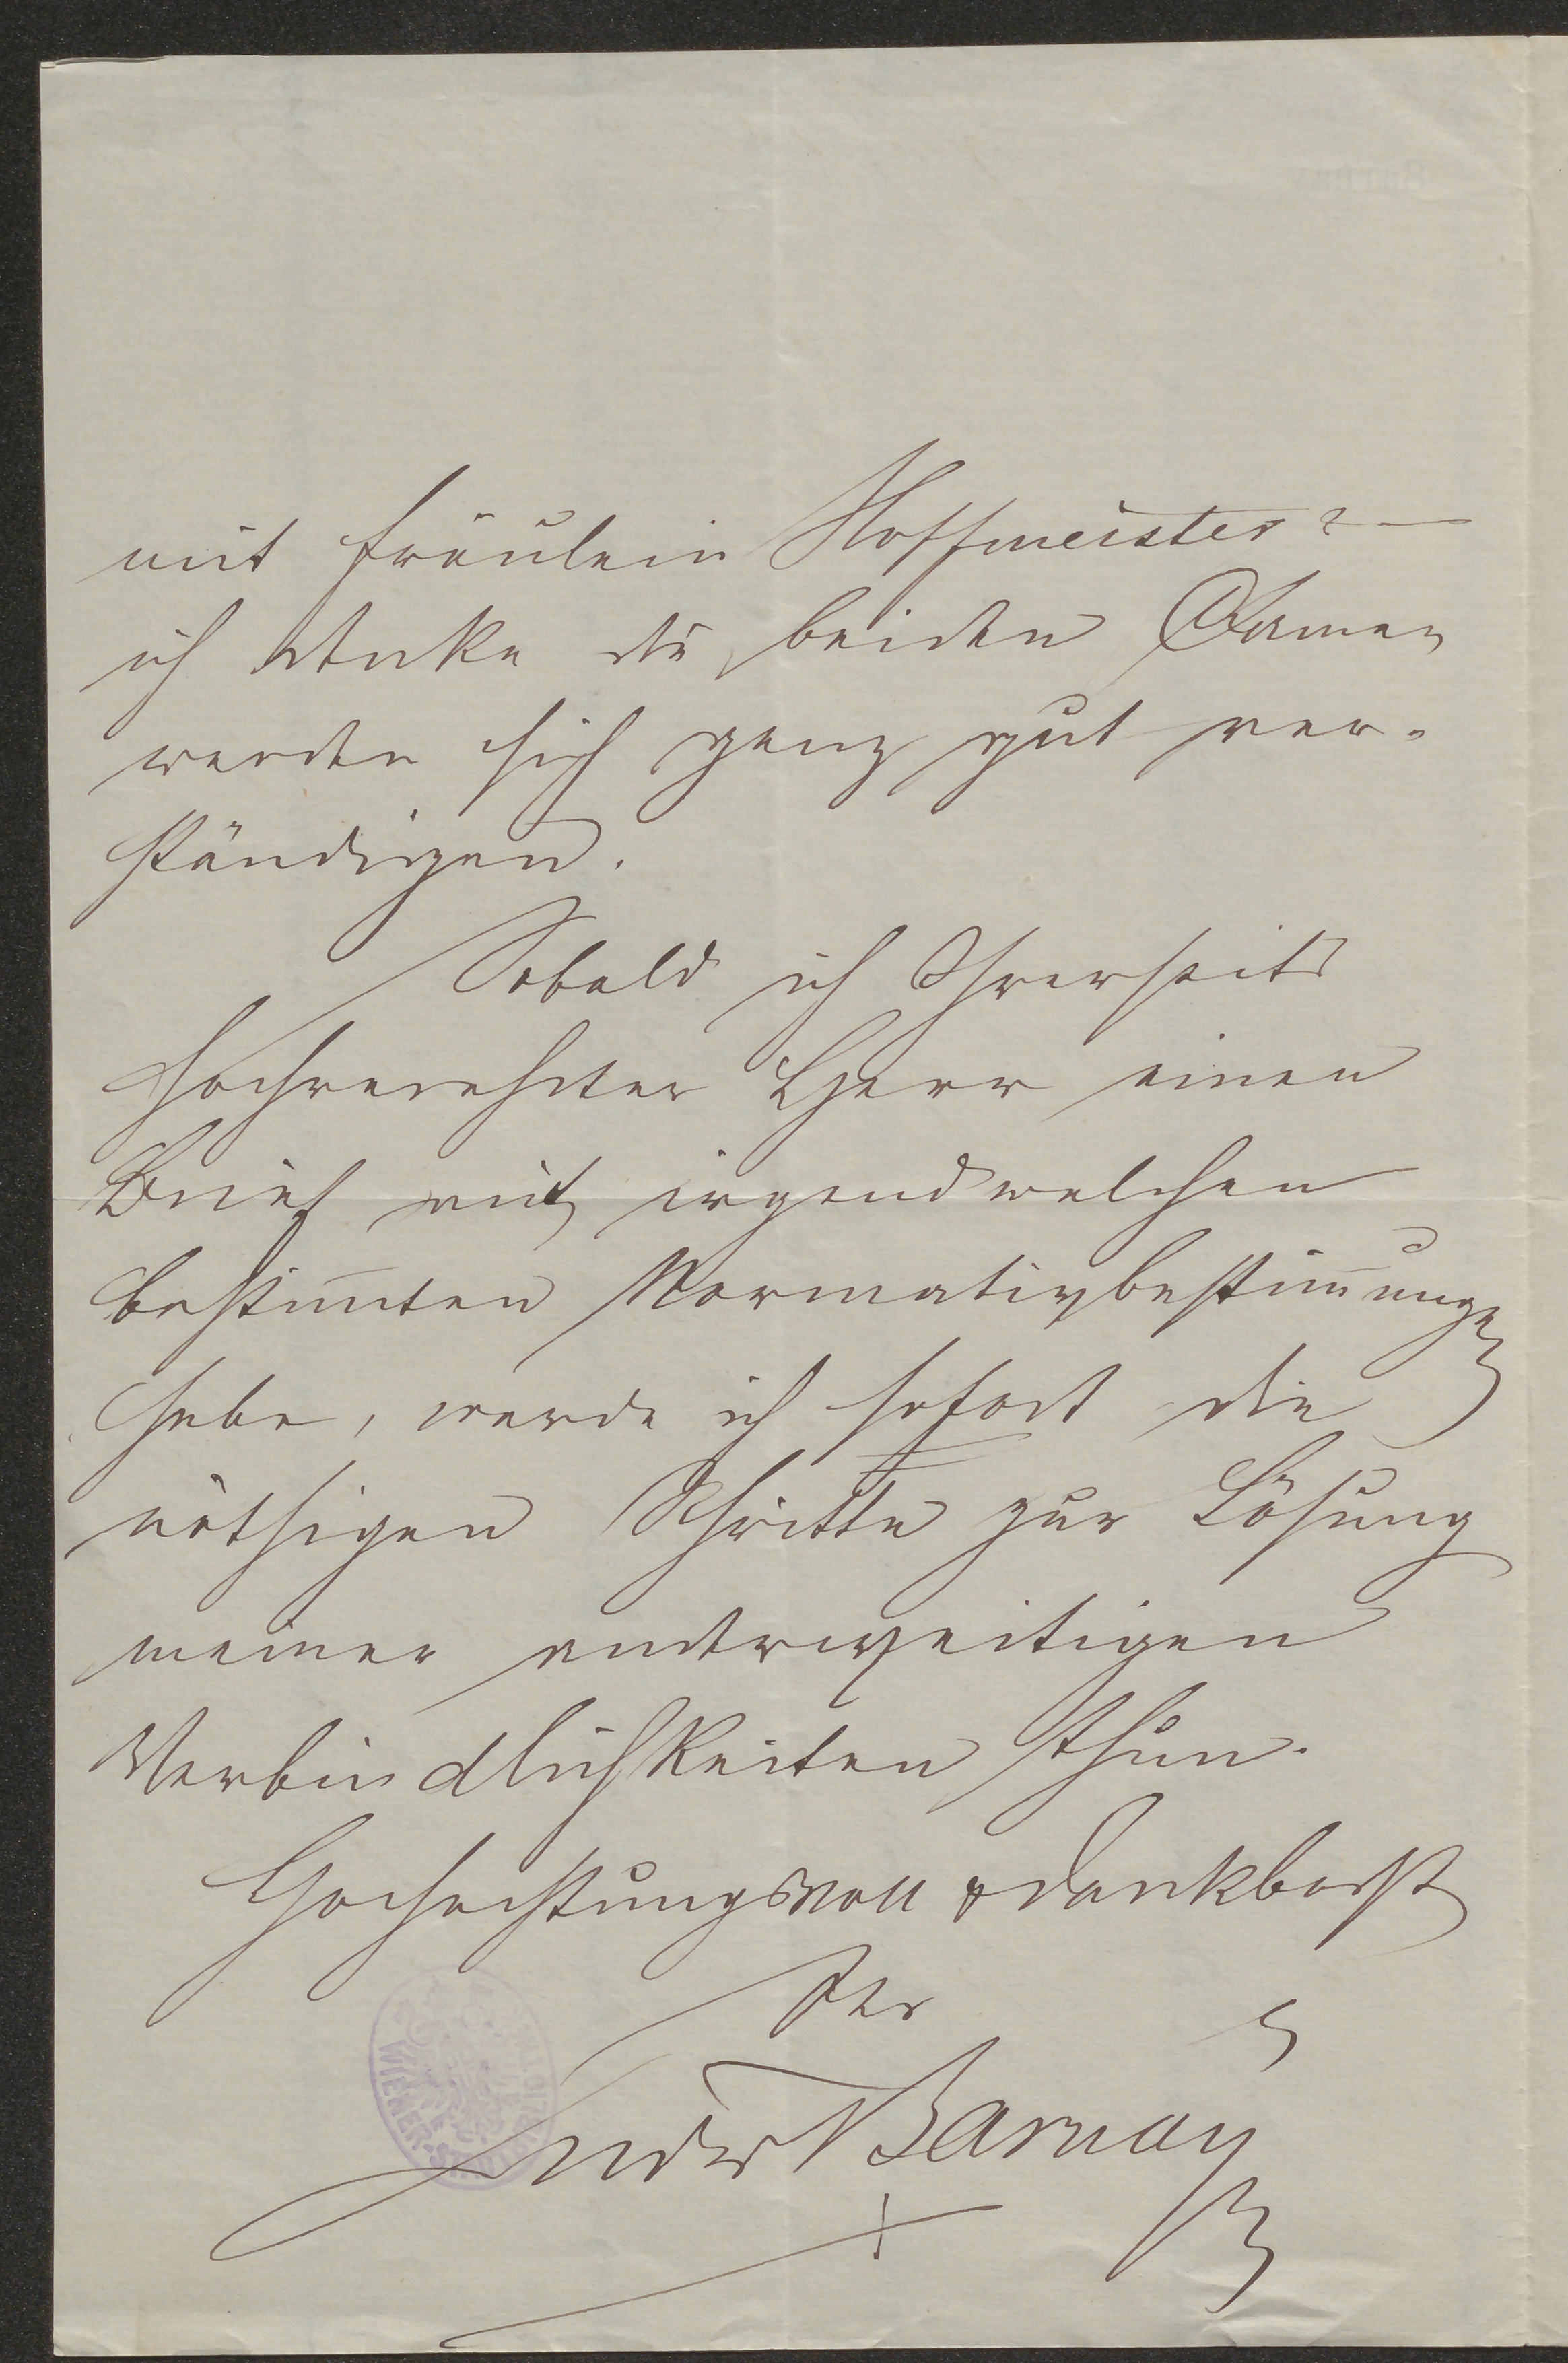 mit Fräulein Hoffmeister? —
ich denke die beiden Damen
werden sich ganz gut ver-
ständigen.
Sobald ich Ihrerseits
hochverehrter Herr einen
Brief mit irgendwelchen
bestim̄ten Normativbestim̄ungen
habe, werde ich sofort die
nöthigen Schritte zur Lösung
meiner anderweitigen
Verbindlichkeiten thun.
Hochachtungsvoll & dankbarst
Ihr
Ludw Barnay
WIENER